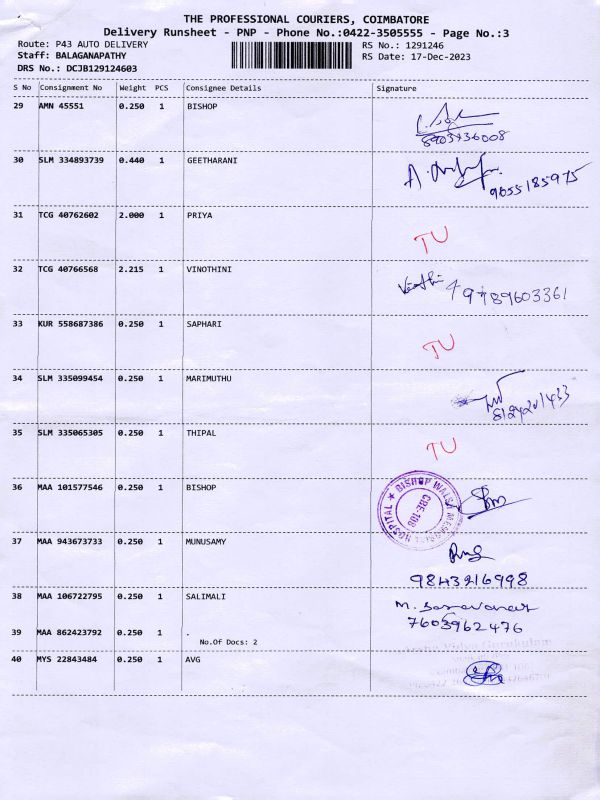 THE PROFESSIONAL COURIERS, COIMBATORE
Delivery Runsheet - PNP - Phone No.:0422-3505555 - Page No.:3
Route: P43 AUTO DELIVERY
RS No.: 1291246
Staff: BALAGANAPATHY
RS Date: 17-Dec-2023
DRS No.: DCJB129124603
S No Consignment No Weight PCS Consignee Details Signature
29 AMN 45551 0.250 1 BISHOP
8903936008
30 SLM 334893739 0.440 1 GEETHARANI
9655185975
31 TCG 40762602 2.000 1 PRIYA
TU
32 TCG 40766568 2.215 1 VINOTHINI
9789603361
33 KUR 558687386 0.250 1 SAPHARI
TU
34 SLM 335099454 0.250 1 MARIMUTHU
8124201433
35 SLM 335065305 0.250 1 THIPAL
TU
36 MAA 101577546 0.250 1 BISHOP
BISHOP HOSPITAL
CBE-108
37 MAA 943673733 0.250 1 MUNUSAMY
9843216998
38 MAA 106722795 0.250 1 SALIMALI
M. Saravanan
7603962476
39 MAA 862423792 0.250 1 .
No.Of Docs: 2
40 MYS 22843484 0.250 1 AVG